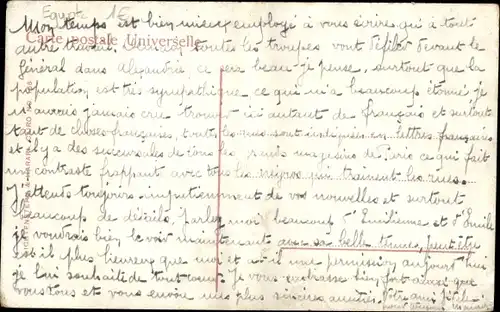 Egypt
Mon temps est bien mieux employé à vous écrire qu'à tout
autre travail. toutes les troupes vont défiler devant le
Carte postale Universelle
Général dans Alexandrie ce sera beau je pense, surtout que la
population est très sympathique ce qui m'a beaucoup étonné je
n'aurais jamais cru trouver ici autant de français et surtout
tant de choses françaises, toutes les rues sont indiquées en lettres françaises
et il y a des succursales de tous les grands magasins de Paris ce qui fait
un contraste frappant avec tous les nègres qui traînent les rues.
J'attends toujours impatiemment de vos nouvelles et surtout
beaucoup de détails. Parlez moi beaucoup d'Emilienne et d'Emile
je voudrais bien le voir maintenant avec sa belle tenue, peut être
est il plus heureux que moi et a-t-il une permission aujourd'hui
je lui souhaite de tout coeur. Je vous embrasse bien fort ainsi que
vous tous et vous envoie mes plus sincères amitiés. Votre ami